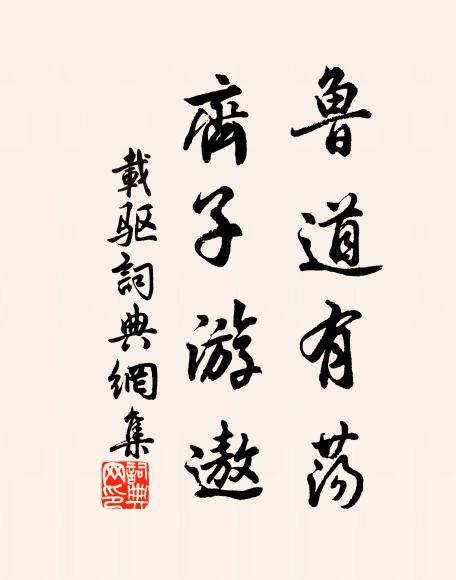 鲁道有荡
齊子游遨
載驱詞典網集
詞典
网印